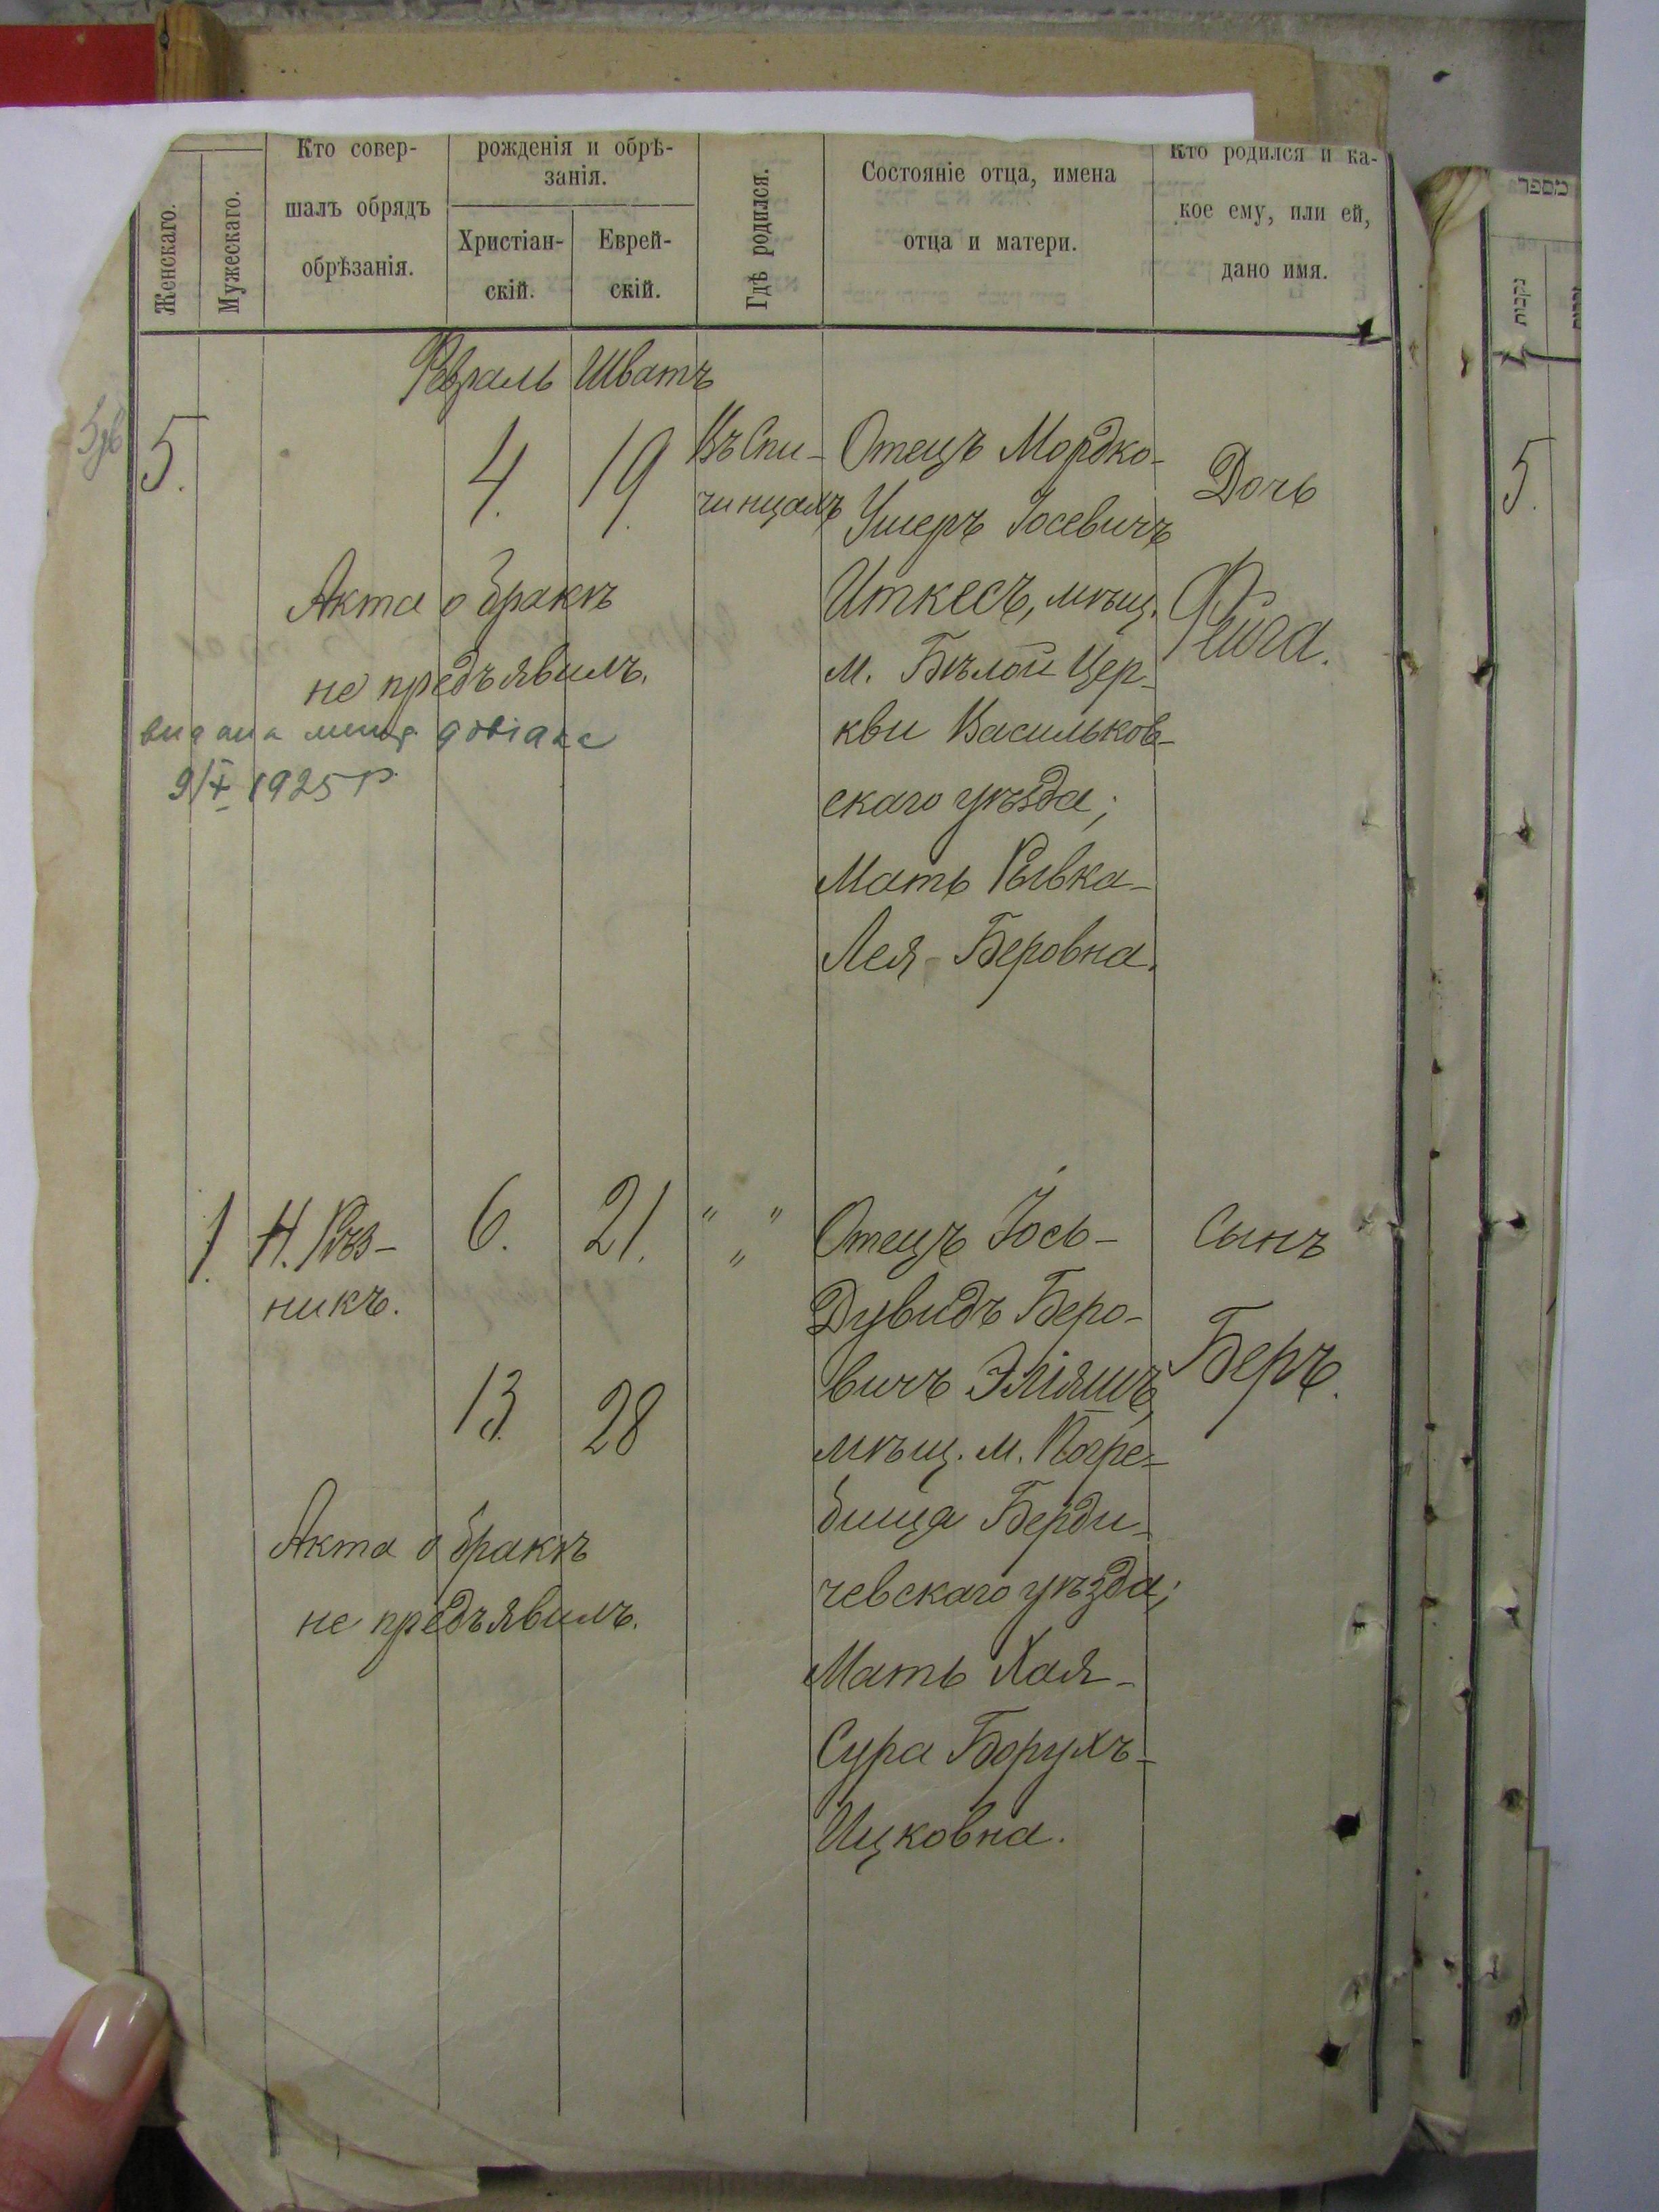 Женскаго.
Мужескаго.
Кто совер-
шалъ обрядъ
обрѣзанія.
рожденія и обрѣ-
занія.
Христіан-
скій.
Еврей-
скій.
Гдѣ родился.
Состояніе отца, имена
отца и матери.
Кто родился и ка-
кое ему, или ей,
дано имя.
מספר
נקבות
Февраль Шватъ
5.
4.
19.
Въ Спи-
чинцахъ
Отецъ Мордко-
Ушеръ Іосевичъ
Иткесъ, мѣщ.
м. Бѣлой Цер-
кви Васильков-
скаго уѣзда;
Мать Рывка-
Лея Беровна.
Дочь
Фейга.
5.
Акта о бракѣ
не предъявилъ.
9/X 1925 р.
1.
Н. Рѣз-
никъ.
6.
21.
" "
"
13.
28
Отецъ Іось-
Дувидъ Беро-
вичъ Эліяшъ,
мѣщ. м. Погре-
бища Берди-
чевскаго уѣзда;
Мать Хая-
Сура Борухъ-
Ицковна.
Сынъ
Беръ.
Акта о бракѣ
не предъявилъ.